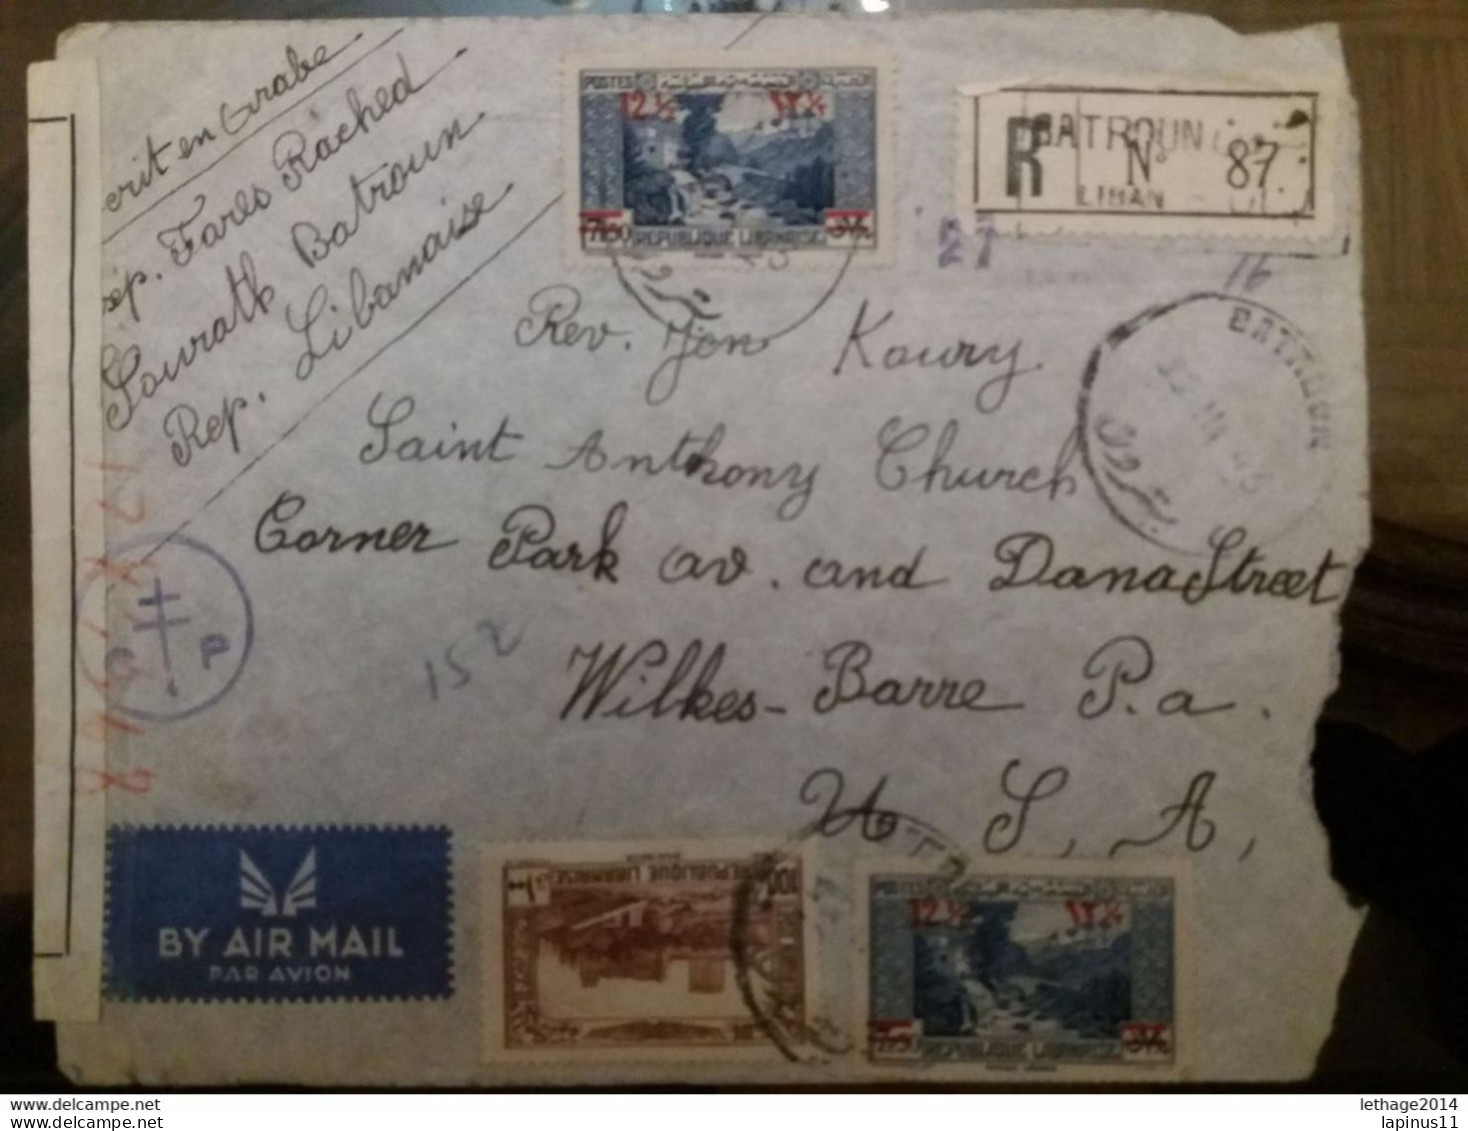 ecrit en Arabe
exp. Fares Rached
Sourath Batroun
Rep. Libanaise
POSTES
12½ ١٢½
7.50
REPUBLIQUE LIBANAISE
R BATROUN
N° 87
LIBAN
27
16
BATROUN
البترون
Rev. Jon Koury
Saint Anthony Church
Corner Park av. and Dana Street
Wilkes-Barre P.a.
U, S, A,
152
P
BY AIR MAIL
PAR AVION
REPUBLIQUE LIBANAISE
100
POSTES
12½ ١٢½
REPUBLIQUE LIBANAISE
lethage2014
lapinus11